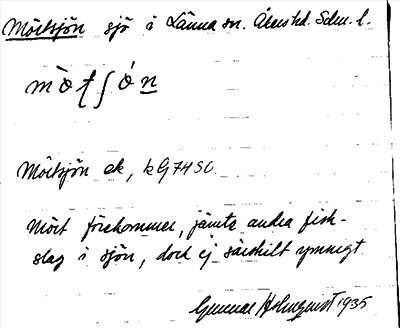 Mörtsjön sjö i Länna sn. Åkers hd. Södm. l.
mö̀tʃø̀n
Mörtsjön ek, kG 74 SO.
Mört förekommer, jämte andra fisk-
slag i sjön, dock ej särskilt ymnigt.
Gunnar Holmquist 1935